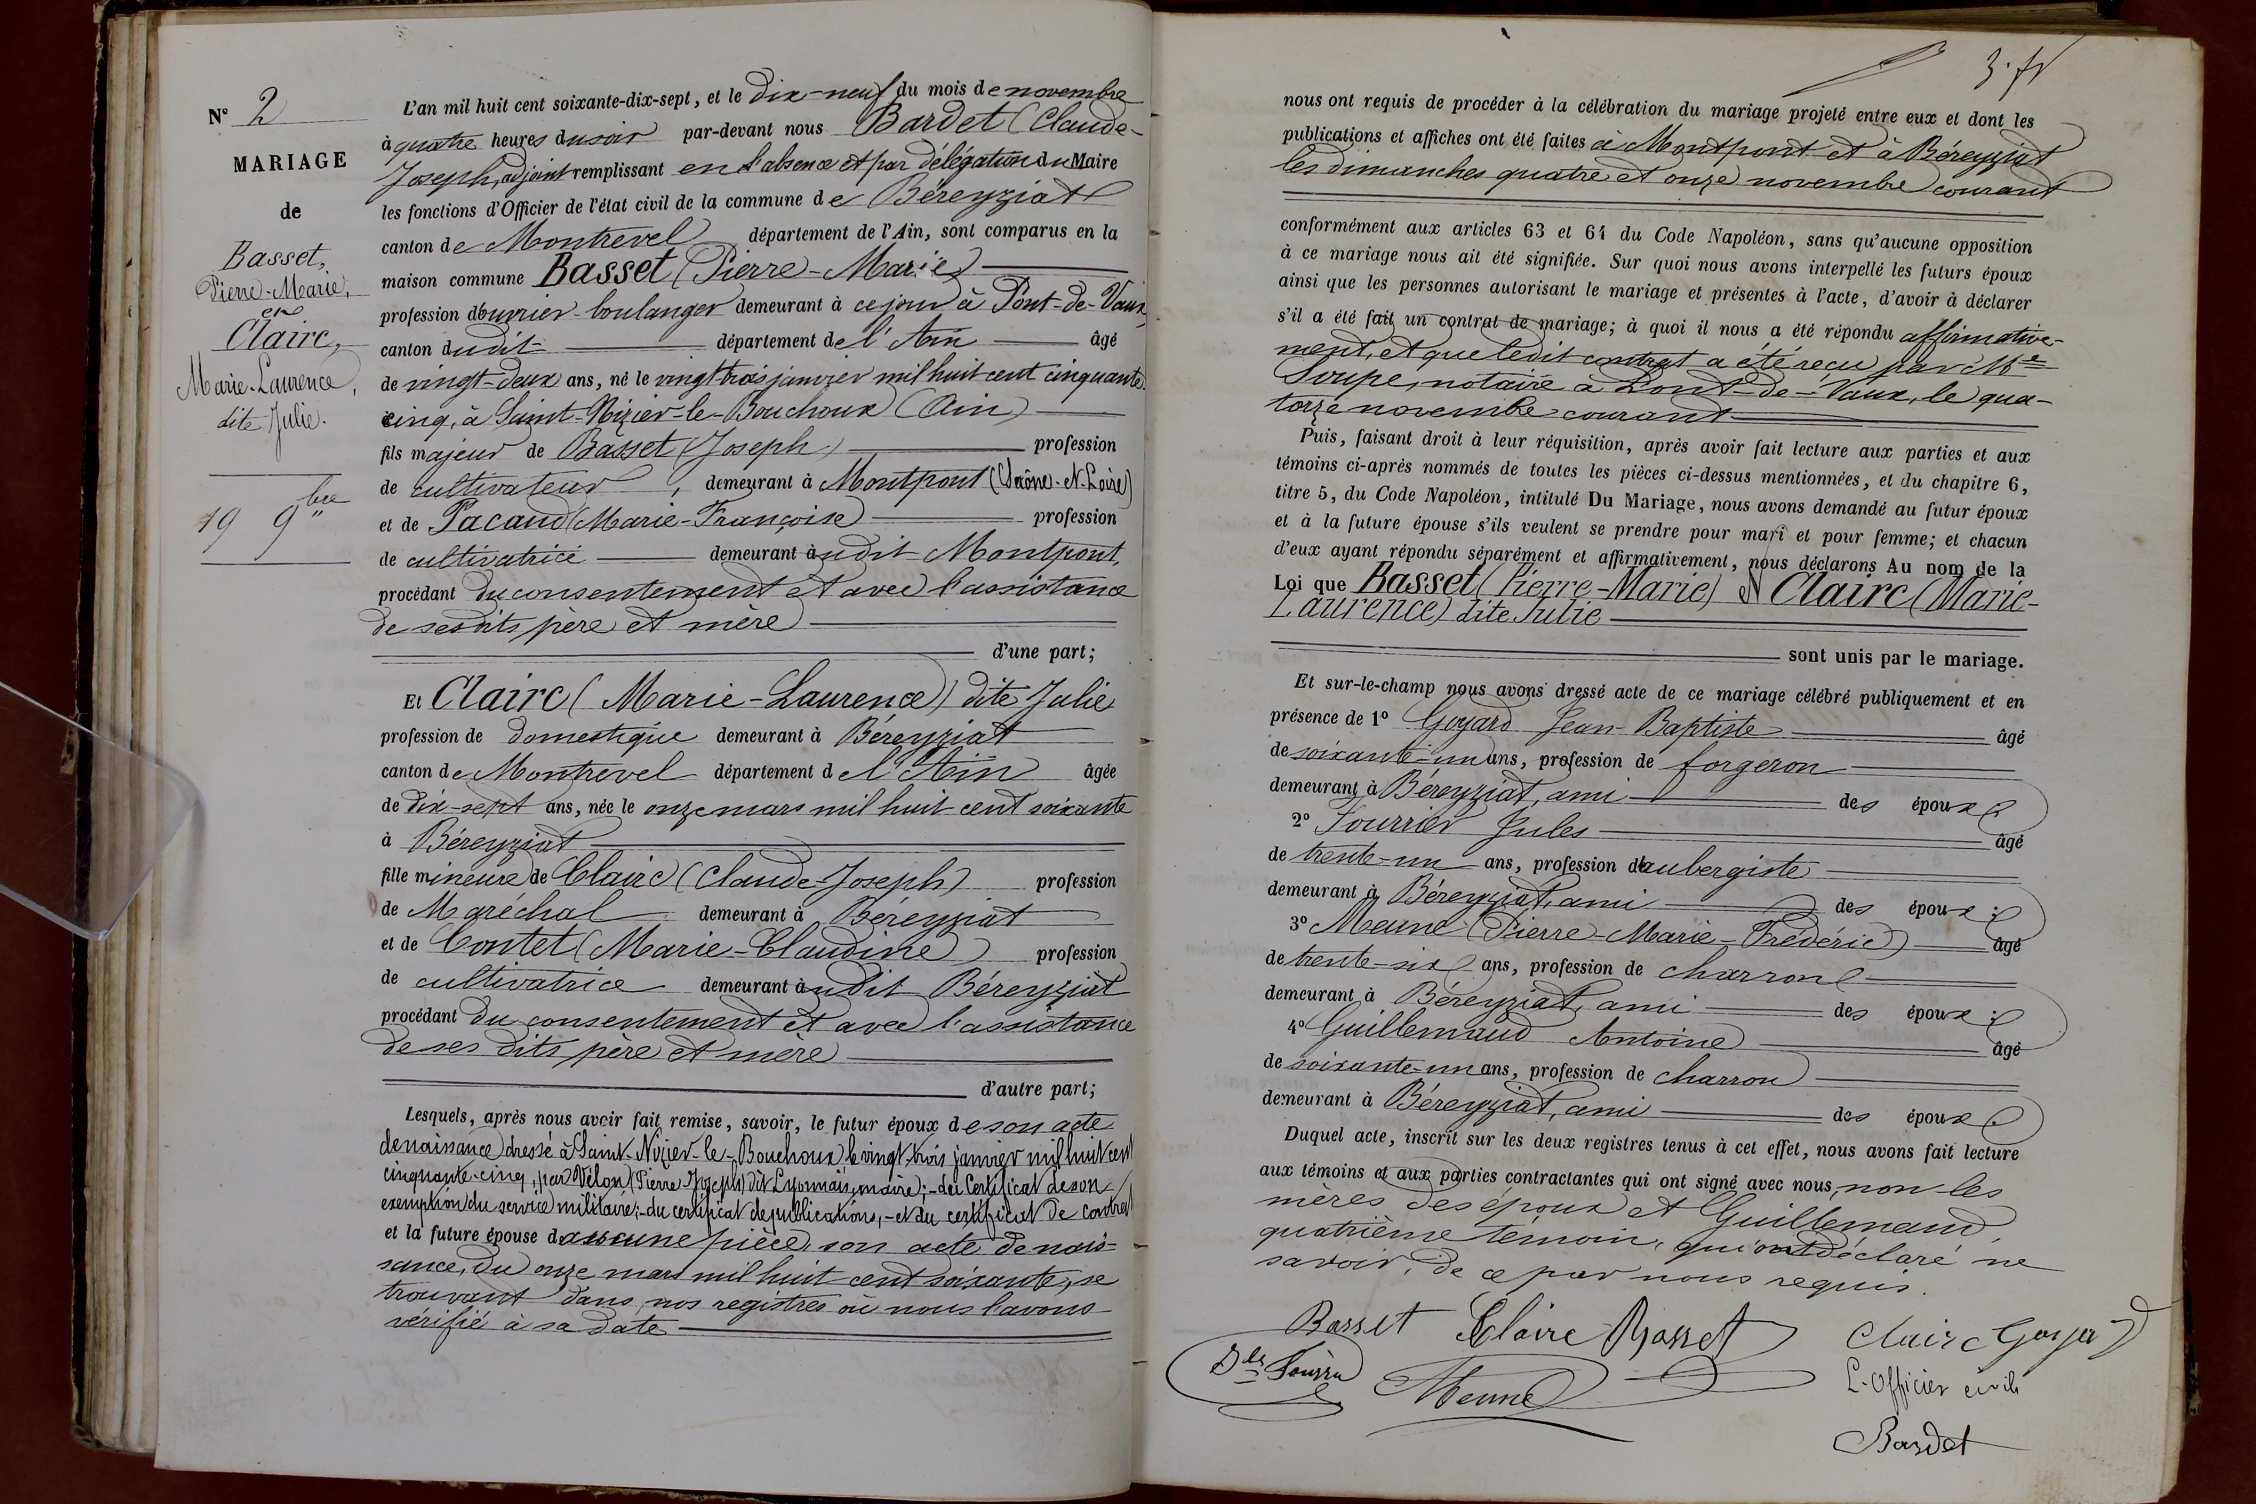 N° 2
MARIAGE
de
Basset,
Pierre-Marie,
et
Clairc,
Marie-Laurence,
dite Julie.
19 9bre
L'an mil huit cent soixante-dix-sept, et le dix-neuf du mois de novembre
à quatre heures du soir par-devant nous Bardet (Claude-
Joseph, adjoint remplissant en l'absence et par délégation du Maire
les fonctions d'Officier de l'état civil de la commune de Béreyziat
canton de Montrevel département de l'Ain, sont comparus en la
maison commune Basset (Pierre-Marie)
profession d'ouvrier-boulanger demeurant à ce jour à Pont-de-Vaux,
canton dudit département de l'Ain âgé
de vingt-deux ans, né le vingt trois janvier mil huit cent cinquante
cinq, à Saint-Nizier-le-Bouchoux (Ain)
fils majeur de Basset (Joseph) profession
de cultivateur, demeurant à Montpont (Saône-et-Loire)
et de Pacaud (Marie-Françoise) profession
de cultivatrice demeurant audit Montpont,
procédant du consentement et avec l'assistance
de sesdits père et mère
d'une part;
Et Clairc (Marie-Laurence) dite Julie
profession de domestique demeurant à Béreyziat
canton de Montrevel département de l'Ain âgée
de dix-sept ans, née le onze mars mil huit cent soixante
à Béreyziat
fille mineure de Clairc (Claude-Joseph) profession
de Maréchal demeurant à Béreyziat
et de Contet (Marie-Claudine) profession
de cultivatrice demeurant audit Béreyziat
procédant du consentement et avec l'assistance
de ses dits père et mère
d'autre part;
Lesquels, après nous avoir fait remise, savoir, le futur époux de son acte
de naissance dressé à Saint-Nizier-le-Bouchoux le vingt-trois janvier mil huit cent
cinquante-cinq, par Vélon (Pierre Joseph) dit Lyonnais, maire; - du Certificat de son
exemption du service militaire; - du certificat de publications, - et du certificat de contrat
et la future épouse d'aucune pièce, son acte de nais-
sance, du onze mars mil huit cent soixante, se
trouvant dans nos registres où nous l'avons
vérifié à sa date
nous ont requis de procéder à la célébration du mariage projeté entre eux et dont les
publications et affiches ont été faites à Montpont et à Béreyziat
les dimanches quatre et onze novembre courant
conformément aux articles 63 et 64 du Code Napoléon, sans qu'aucune opposition
à ce mariage nous ait été signifiée. Sur quoi nous avons interpellé les futurs époux
ainsi que les personnes autorisant le mariage et présentes à l'acte, d'avoir à déclarer
s'il a été fait un contrat de mariage; à quoi il nous a été répondu affirmative-
ment, et que ledit contrat a été reçu par Me
Soupe, notaire à Pont-de-Vaux, le qua-
torze novembre courant
Puis, faisant droit à leur réquisition, après avoir fait lecture aux parties et aux
témoins ci-après nommés de toutes les pièces ci-dessus mentionnées, et du chapitre 6,
titre 5, du Code Napoléon, intitulé Du Mariage, nous avons demandé au futur époux
et à la future épouse s'ils veulent se prendre pour mari et pour femme; et chacun
d'eux ayant répondu séparément et affirmativement, nous déclarons Au nom de la
Loi que Basset (Pierre-Marie) et Clairc (Marie-
Laurence) dite Julie
sont unis par le mariage.
Et sur-le-champ nous avons dressé acte de ce mariage célébré publiquement et en
présence de 1° Goyard Jean-Baptiste âgé
de soixante-un ans, profession de forgeron
demeurant à Béreyziat, ami des époux
2° Fourrier Jules âgé
de trente-un ans, profession d'aubergiste
demeurant à Béreyziat, ami des époux;
3° Meune (Pierre-Marie-Frédéric) âgé
de trente-six ans, profession de charron
demeurant à Béreyziat, ami des époux;
4° Guillemaud Antoine âgé
de soixante-un ans, profession de charron
demeurant à Béreyziat, ami des époux.
Duquel acte, inscrit sur les deux registres tenus à cet effet, nous avons fait lecture
aux témoins et aux parties contractantes qui ont signé avec nous, non les
mères des époux et Guillemaud,
quatrième témoin, qui ont déclaré ne
savoir, de ce par nous requis.
Basset Claire Basset Clairc Goyard
Jles Fourrier Meune L'officier civil
Bardet